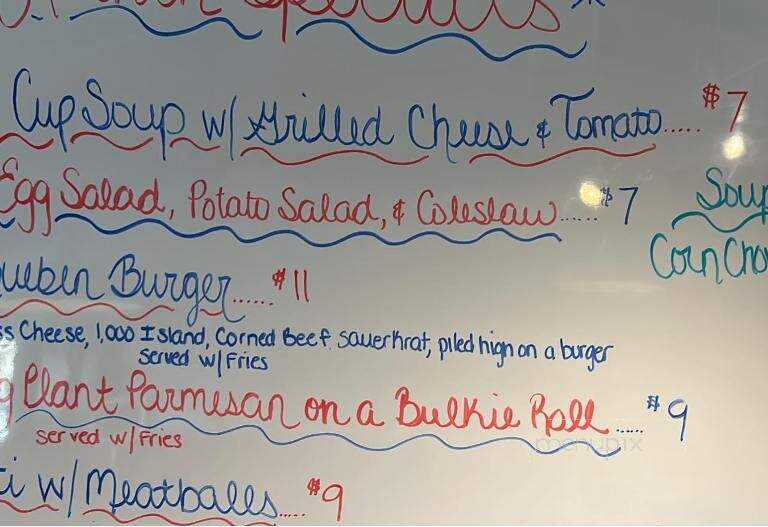 Specials
Cup Soup w/ Grilled Cheese & Tomato..... $7
Egg Salad, Potato Salad, & Coleslaw...... $7
Soup
Corn Cho
ueben Burger...... $11
ss Cheese, 1,000 Island, Corned Beef Sauerkrat, piled high on a burger
served w/Fries
g Plant Parmesan on a Bulkie Roll...... $9
served w/Fries
menupix
i w/ Meatballs..... $9